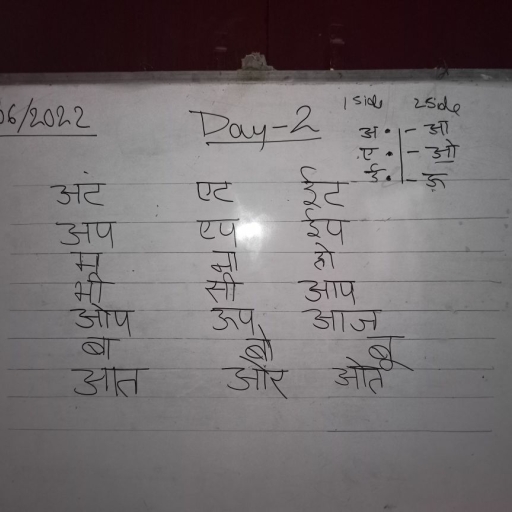 06/2022 Day-2 1 side 2 side
अ. - आ
ए. - ओ
ई. - ऊ
अंट एट ईट
अप एप ईप
म मा हो
भी सी आप
ओप ऊप आज
बा बो बू
आत ओर ओत